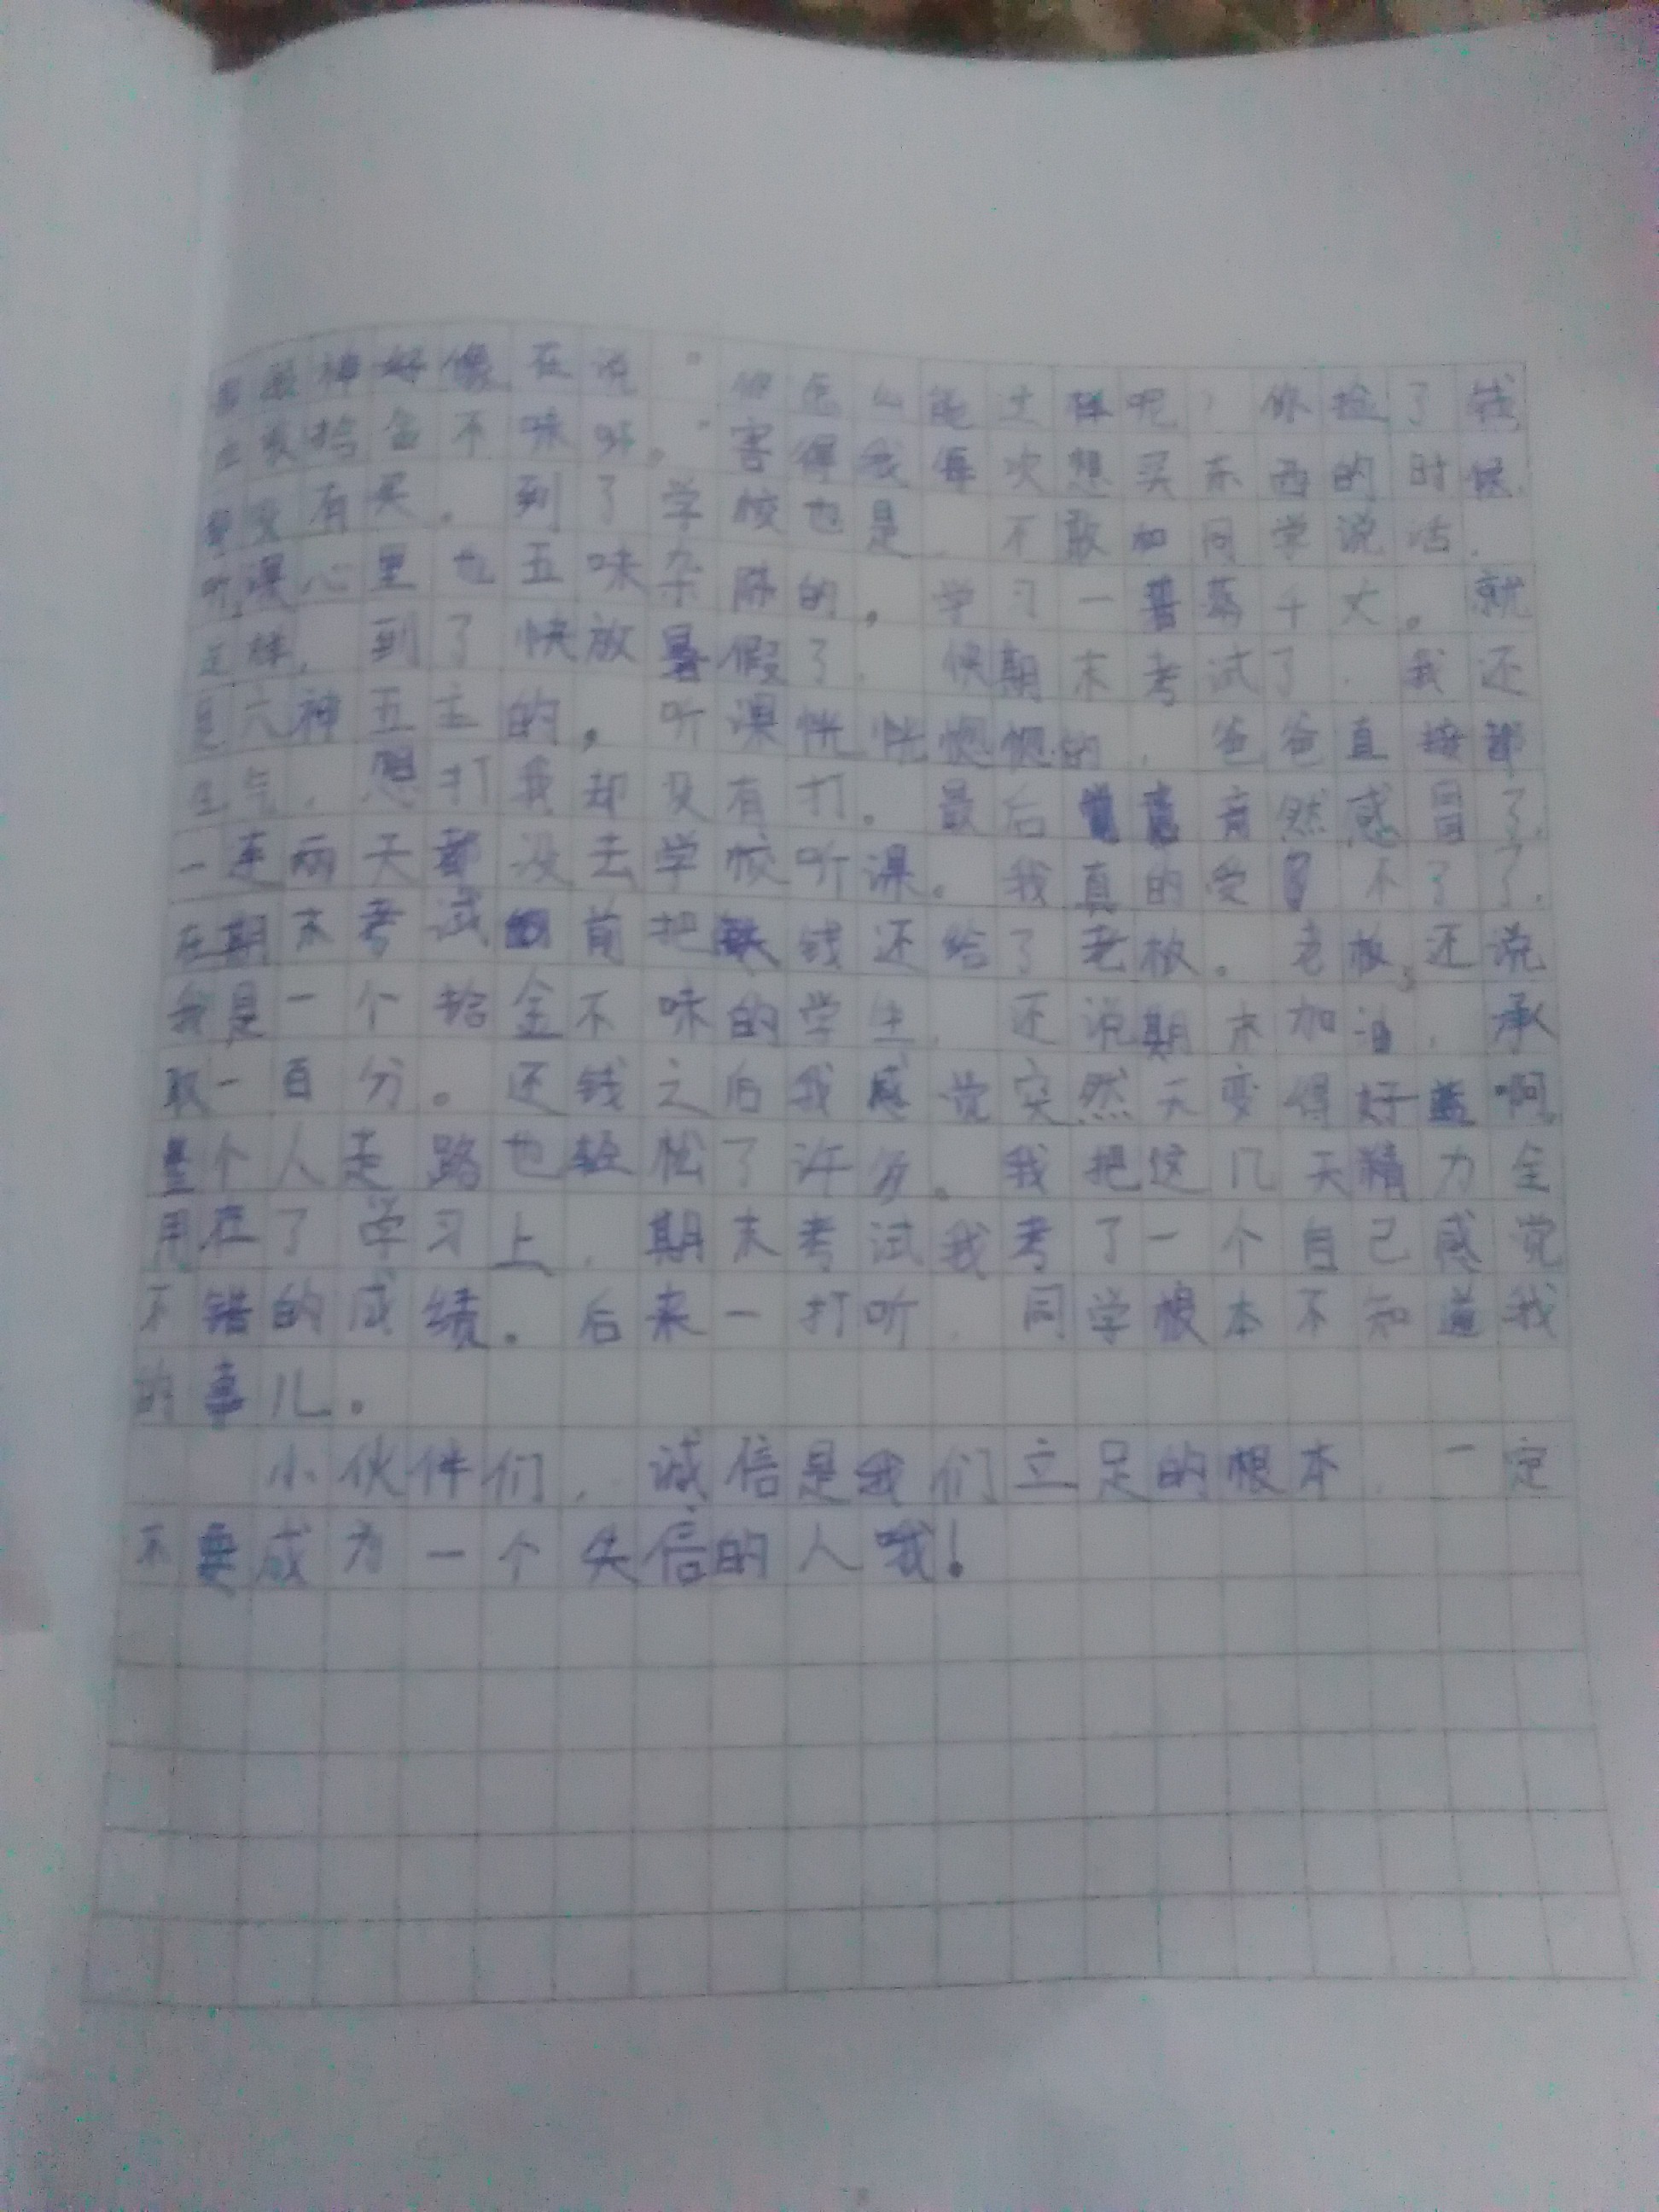 眼神好像在说："你怎么能这样呢？你捡了钱
应该拾金不昧呀。"害得我每次想买东西的时候，
都没有买。到了学校也是，不敢和同学说话，
听课心里也五味杂陈的。学习一落千丈。就
这样，到了快放暑假了，快期末考试了，我还
是六神五主的。听课恍恍惚惚的，爸爸直接都
生气，想打我却没有打。最后竟然感冒了，
一连两天都没去学校听课。我真的受不了了，
在期末考试前把钱还给了老板。老板还说
我是一个拾金不昧的学生，还说期末加油，承
取一百分。还钱之后我感觉突然天变得好蓝啊，
整个人走路也轻松了许多。我把这几天精力全
用在了学习上，期末考试我考了一个自己感觉
不错的成绩。后来一打听，同学根本不知道我
的事儿。
小伙伴们，诚信是我们立足的根本，一定
不要成为一个失信的人哦！